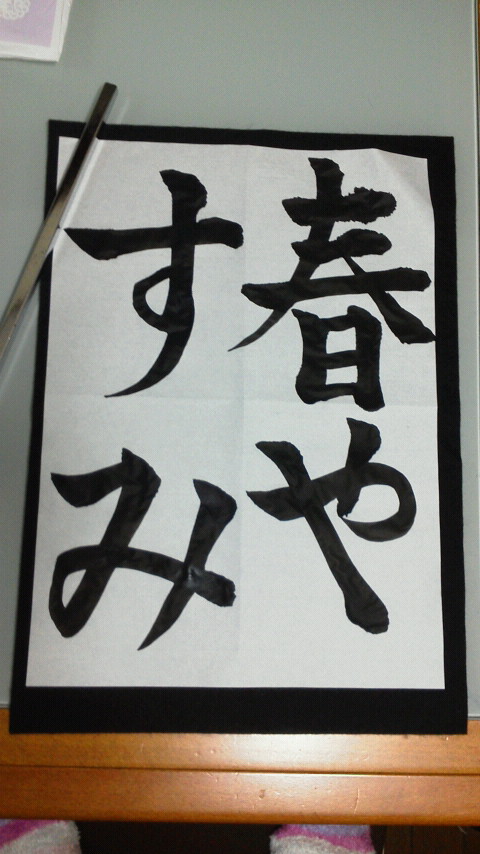 春や
すみ